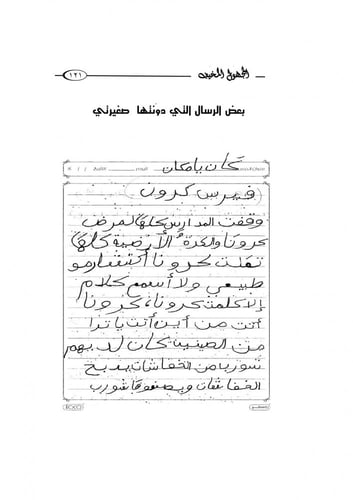 المجهول المخيف
١٢١
بعض الرسال التي دونتها صغيرتي
كان يا مكان
(فيرس كرون)
وقفت المدارس كلها لمرض
كرونا والكرة الأرضية كلها
تقلت كرونا أنتشار هو
طبيعي ولا أسمع كلام
إلا كلمت كرونا، كرونا
أتت من أين أتت يا ترا
من الصين كان لديهم
شوربا من الخفاشات يذبح
الخفاشات ويصنعوها شورب